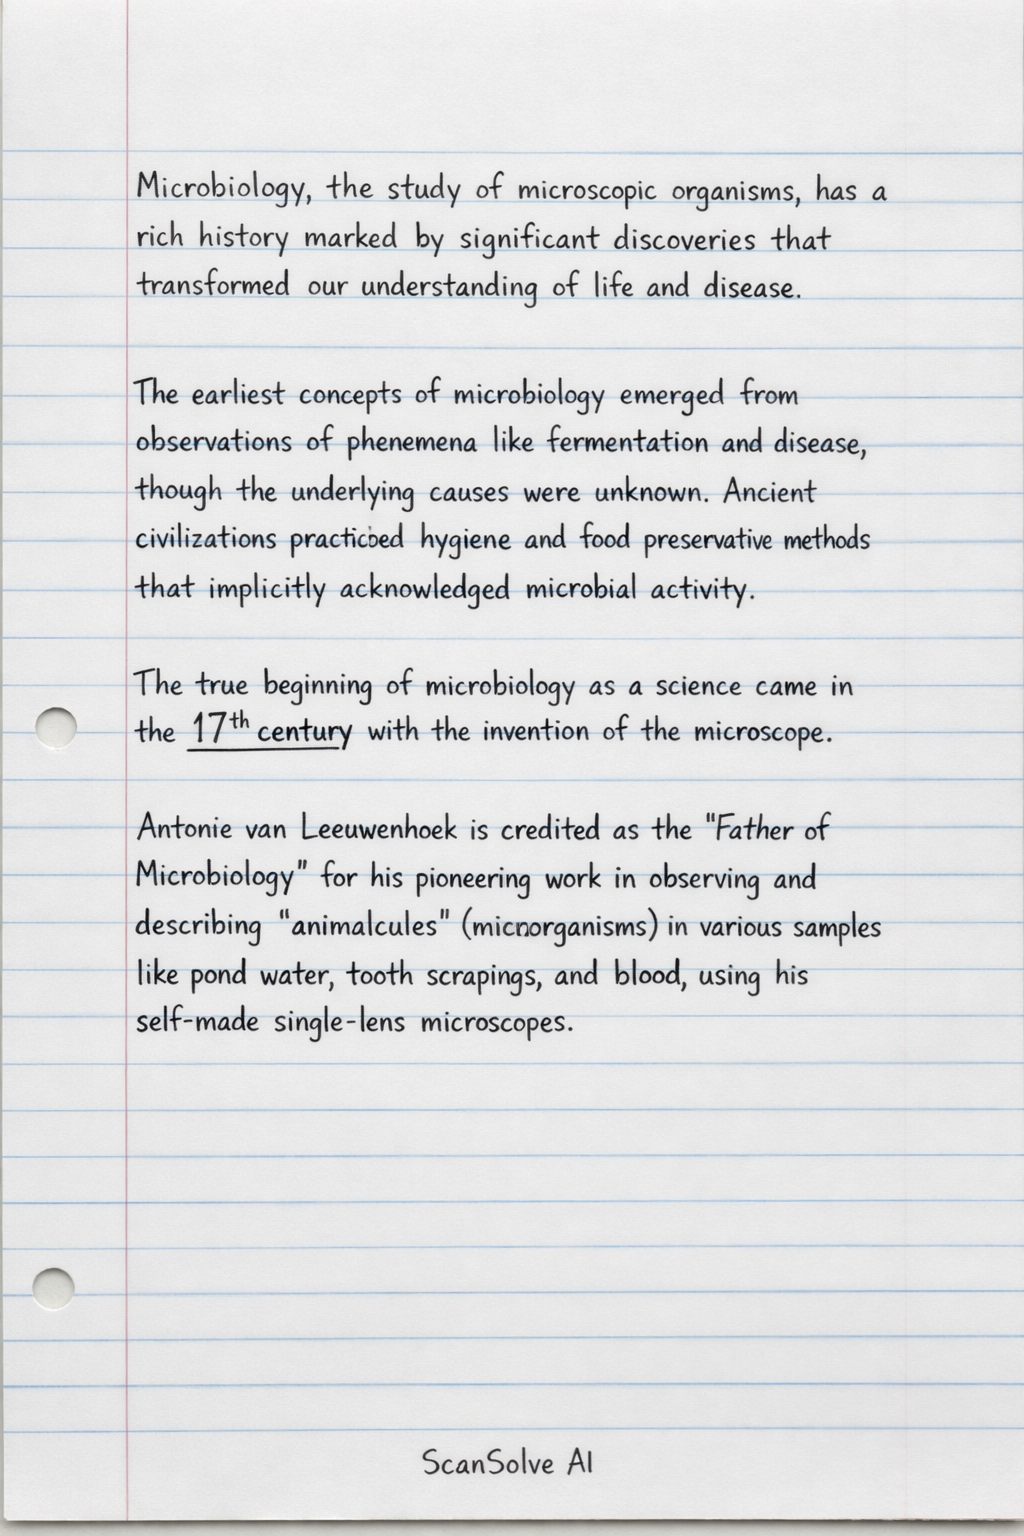 Microbiology, the study of microscopic organisms, has a
rich history marked by significant discoveries that
transformed our understanding of life and disease.
The earliest concepts of microbiology emerged from
observations of phenemena like fermentation and disease,
though the underlying causes were unknown. Ancient
civilizations hygiene and food preservative methods
that implicitly acknowledged microbial activity.
The true beginning of microbiology as a science came in
the 17th century with the invention of the microscope.
Antonie van Leeuwenhoek is credited as the "Father of
Microbiology" for his pioneering work in observing and
describing "animalcules" (micnorganisms) in various samples
like pond water, tooth scrapings, and blood, using his
self-made single-lens microscopes.
ScanSolve AI